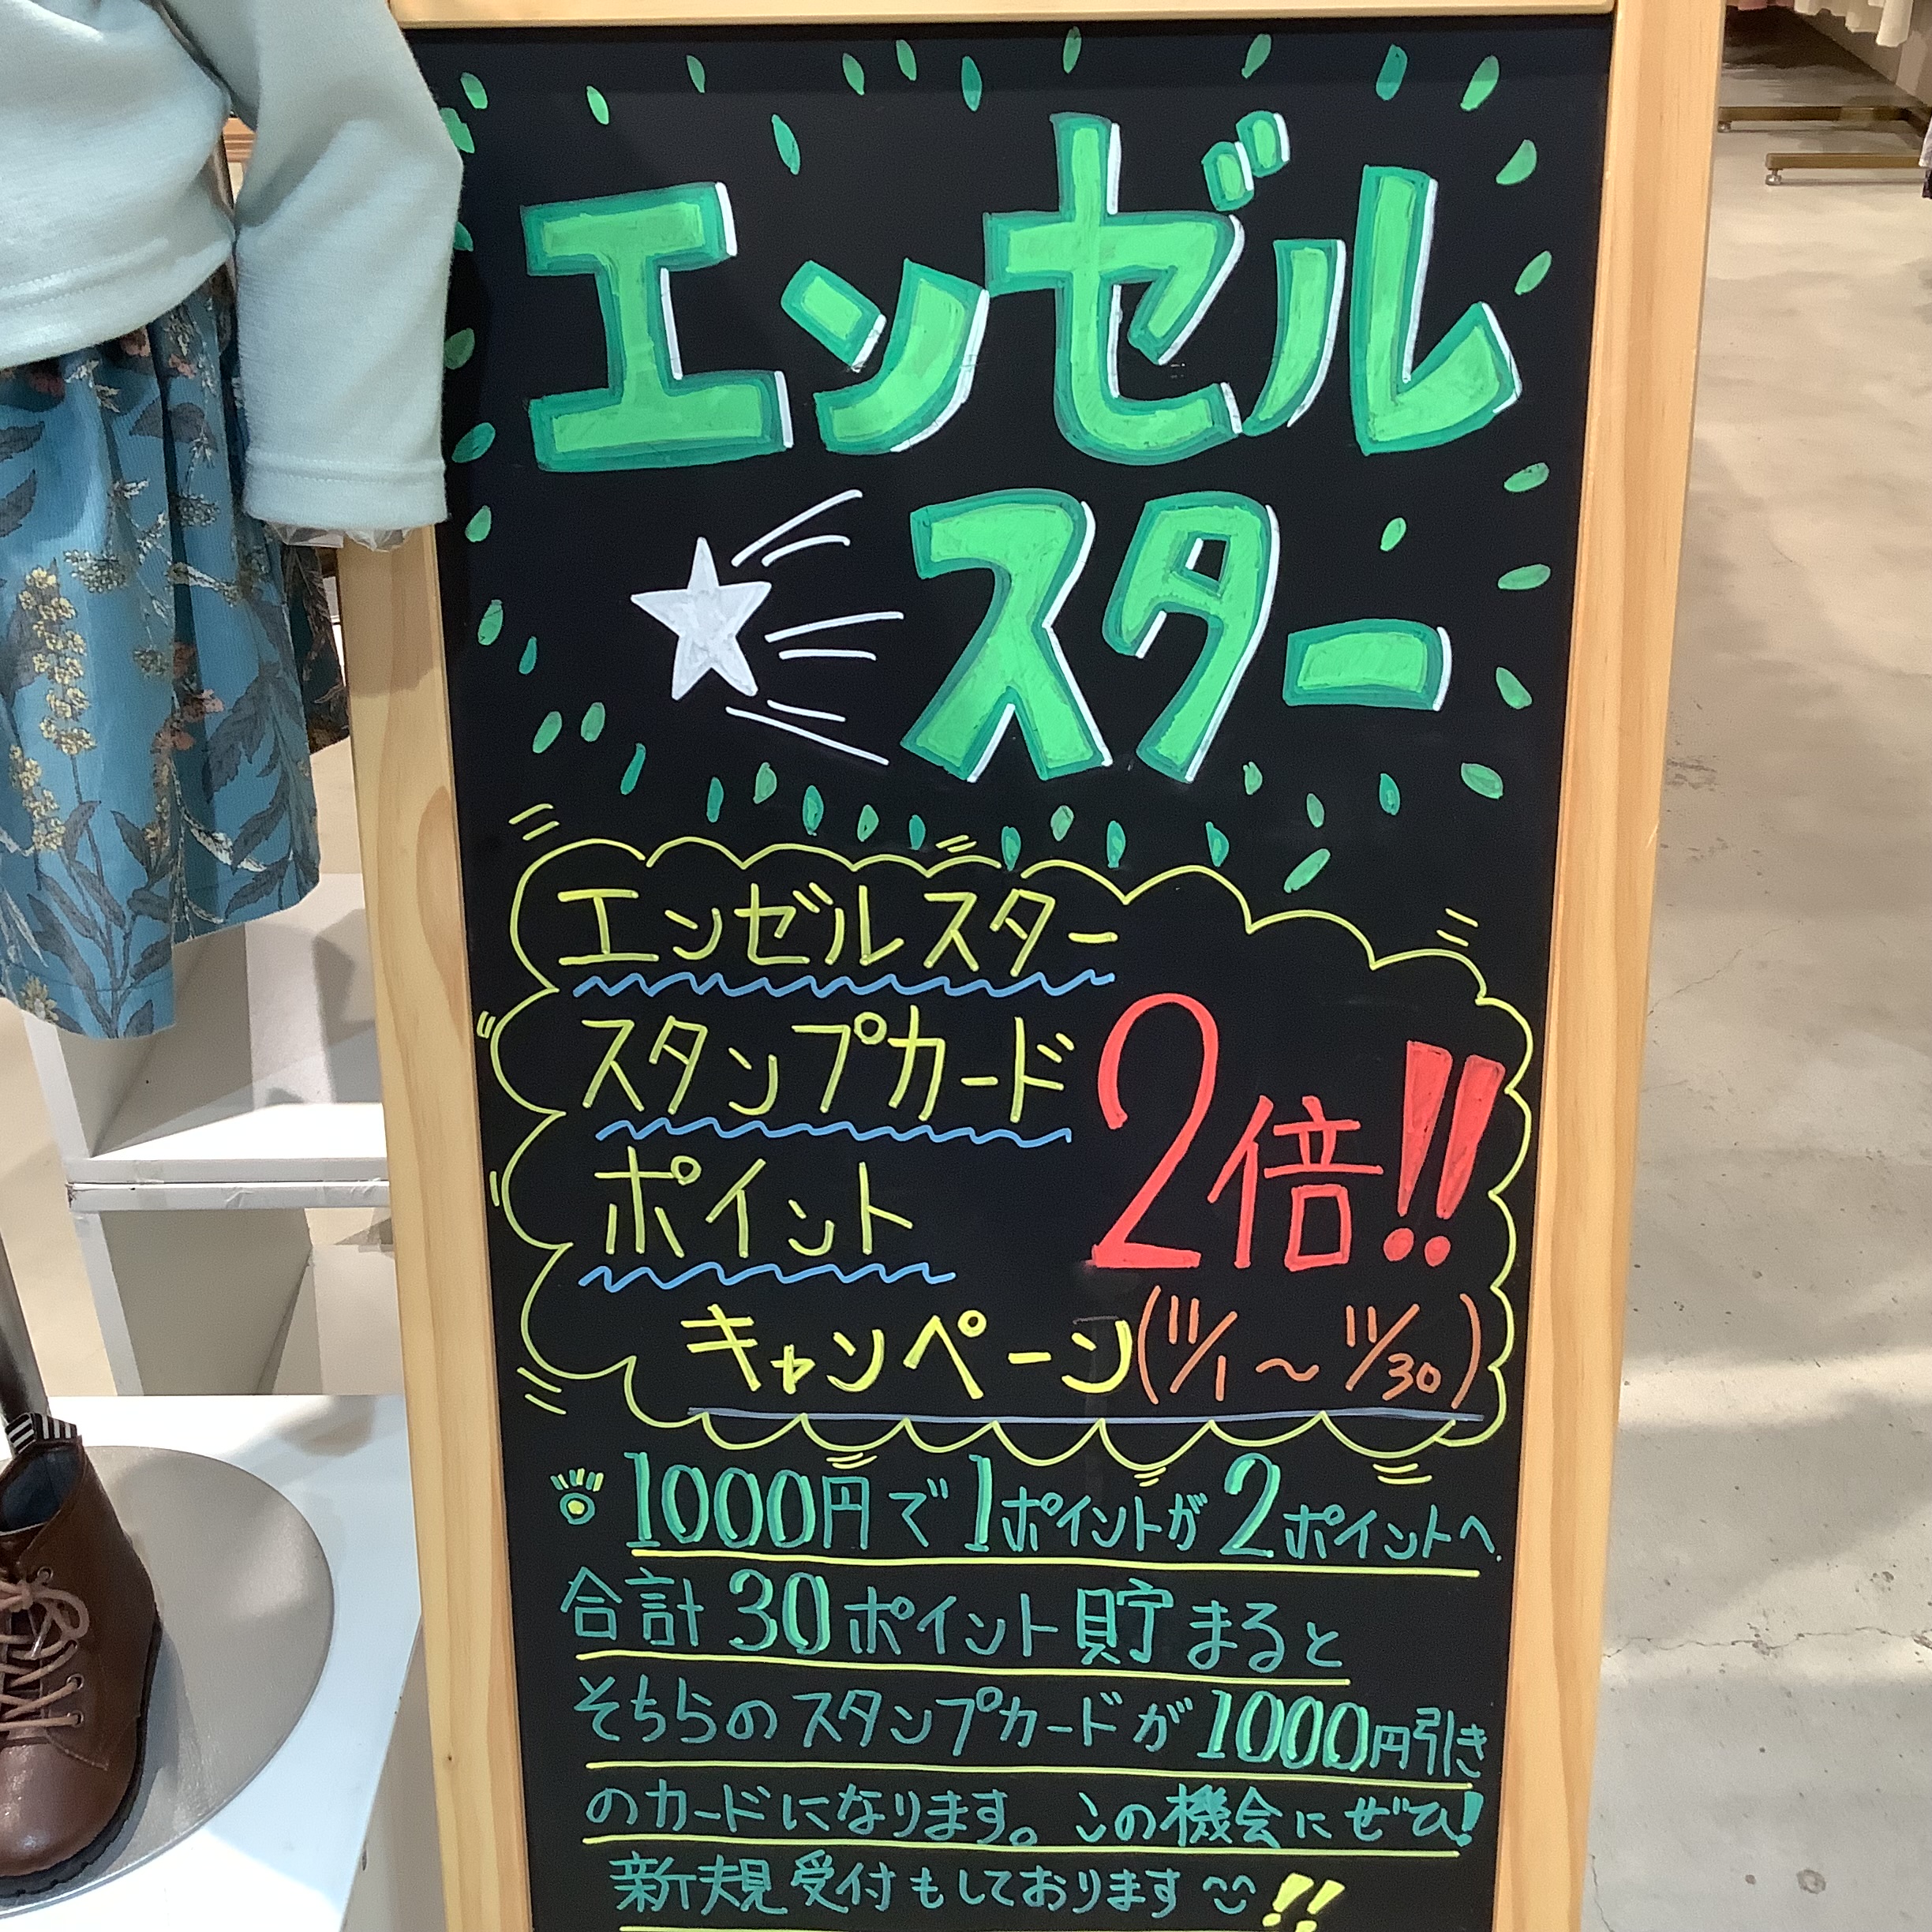 エンゼル
スター
エンゼルスター
スタンプカード
ポイント
2倍!!
キャンペーン(11/1〜11/30)
1000円で1ポイントが2ポイントへ
合計30ポイント貯まると
そちらのスタンプカードが1000円引き
のカードになります。この機会にぜひ!
新規受付もしております^^!!